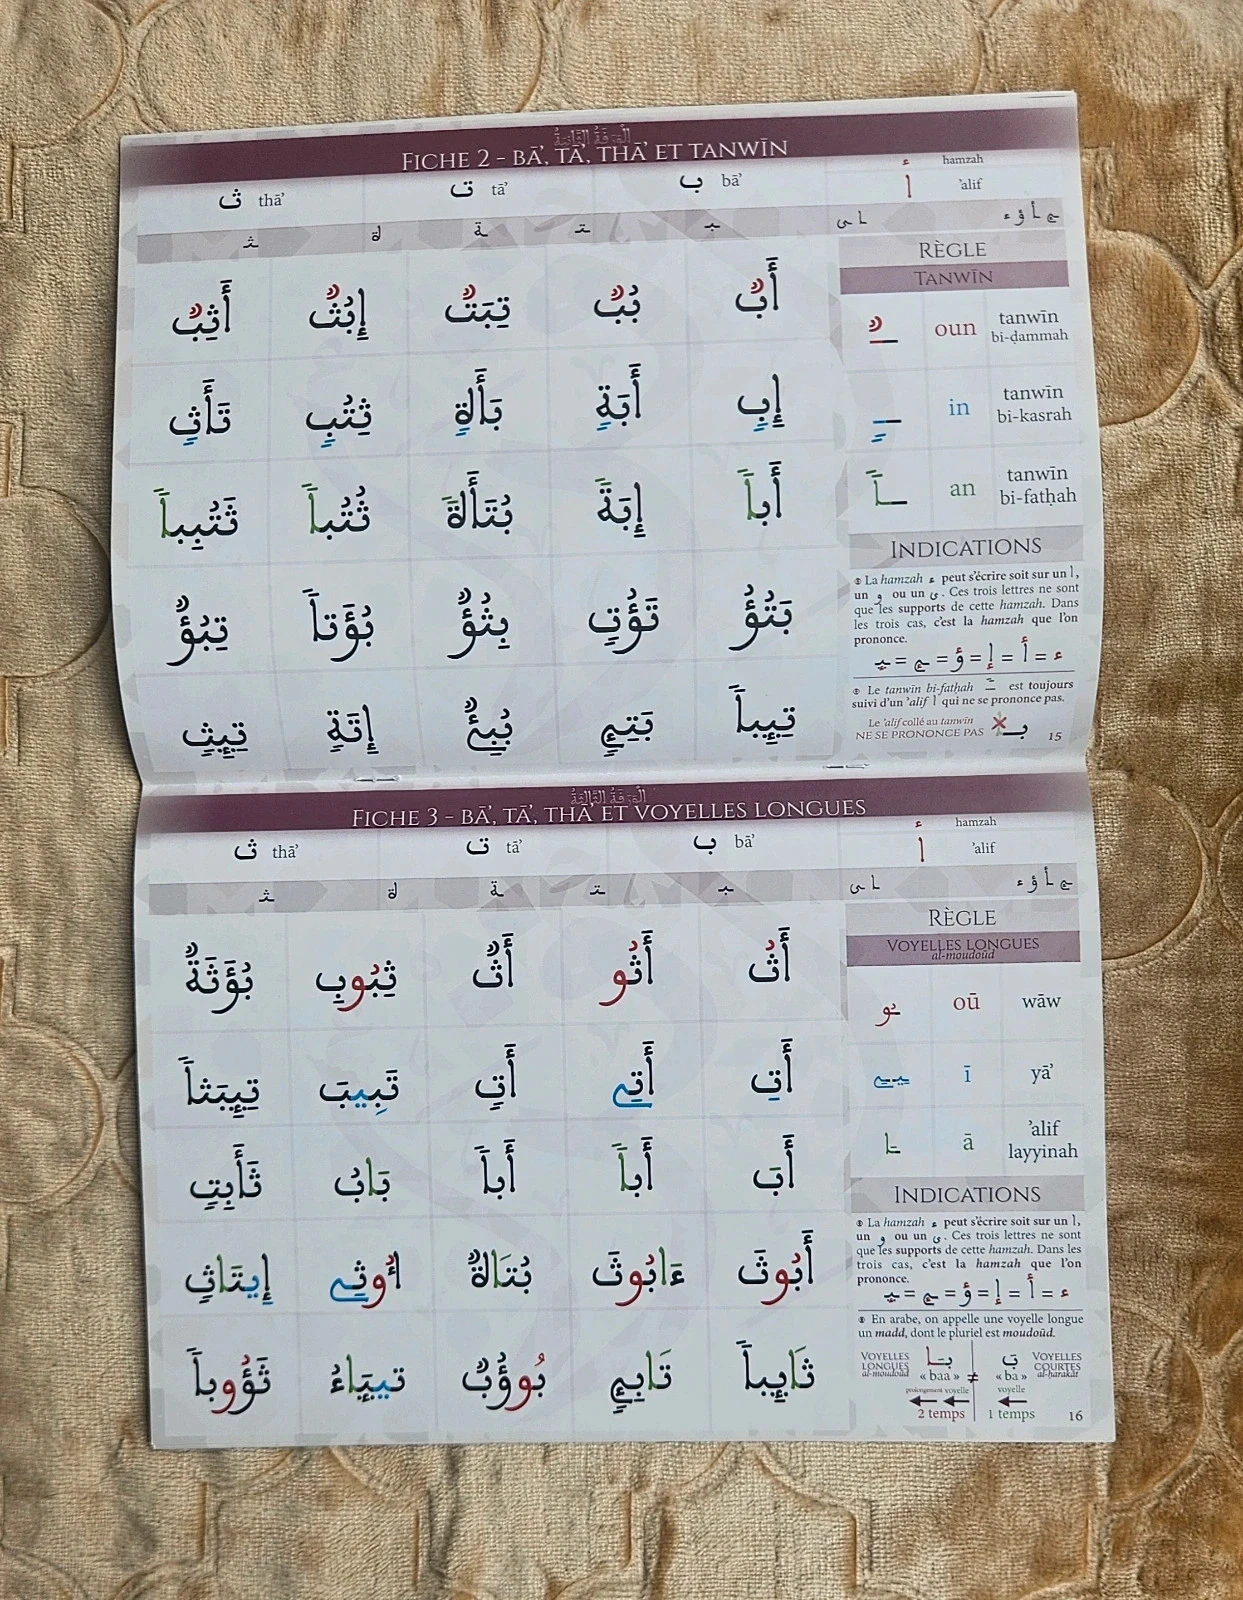 الْوَرَقَةُ الثَّانِيَةُ
FICHE 2 - BĀ’, TĀ’, THĀ’ ET TANWĪN
ث thā’ ت tā’ ب bā’
ء hamzah
أ ’alif
ثـ ة ـة ـتـ ـبـ
ا ى ئ أ ؤ ء
أَبٌ بُبٌ تِبَتٌ إِبُثٌ أَثِبٌ
إِبٍ أَبَةٍ بَأَلَةٍ ثِتُبٍ تَأَثٍ
أَباً إِبَةً بُتَأَةً ثُتُباً ثَتُبِباً
بَتُؤُ تَؤُتِ بِثُؤٌ بُؤَتاً تِبُؤٌ
تِيِباً بَتِئٍ بُبِئٌ إِتَةٍ تِئِثٍ
RÈGLE
TANWĪN
ــٌ oun tanwīn
bi-ḍammah
ــٍ in tanwīn
bi-kasrah
ــاً an tanwīn
bi-fatḥah
INDICATIONS
La hamzah ء peut s’écrire soit sur un ا,
un و ou un ى. Ces trois lettres ne sont
que les supports de cette hamzah. Dans
les trois cas, c’est la hamzah que l’on
prononce.
ء = أ = إ = ؤ = ئ = ـئـ
Le tanwīn bi-fatḥah ـً est toujours
suivi d’un ’alif ا qui ne se prononce pas.
Le ’alif collé au tanwīn
NE SE PRONONCE PAS
15
الْوَرَقَةُ الثَّالِثَةُ
FICHE 3 - BĀ’, TĀ’, THĀ’ ET VOYELLES LONGUES
ث thā’ ت tā’ ب bā’
ء hamzah
أ ’alif
ثـ ة ـة ـتـ ـبـ
ا ى ئ أ ؤ ء
أَثُ أَثُو أَثٌ ثِبُوبِ بُؤَثَةٌ
أَتِ أَتِي أَتٍ تَبِيبَ تِئِبَثاً
أَبَ أَبَا أَباً بَابُ ثَأَبِتٍ
أَبُوثَ ءَابُوثَ بُتَاةٌ اُوثِي إِيتَاثٍ
ثَايِباً تَابِئٍ بُوؤُبٌ تيِيَاءُ ثَؤُوباً
RÈGLE
VOYELLES LONGUES
al-moudoūd
ـُو oū wāw
ـِيـ ī yā’
ـَا ā ’alif
layyinah
INDICATIONS
La hamzah ء peut s’écrire soit sur un ا,
un و ou un ى. Ces trois lettres ne sont
que les supports de cette hamzah. Dans les
trois cas, c’est la hamzah que l’on
prononce.
ء = أ = إ = ؤ = ئ = ـئـ
En arabe, on appelle une voyelle longue
un madd, dont le pluriel est moudoūd.
VOYELLES
LONGUES
al-moudoūd
بَـا
« baa »
≠
بَ
« ba »
VOYELLES
COURTES
al-ḥarakāt
prolongement voyelle
voyelle
2 temps 1 temps
16